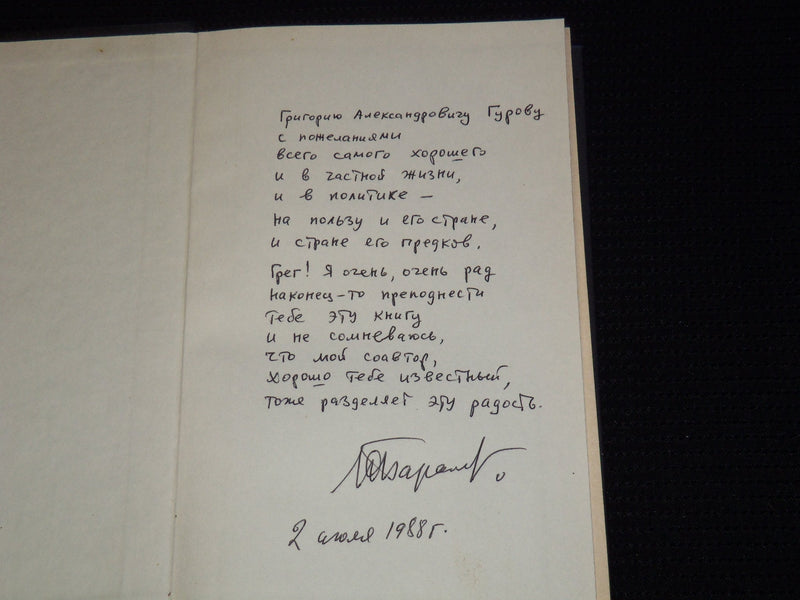 Григорию Александровичу Гурову
с пожеланиями
всего самого хорошего
и в частной жизни,
и в политике –
на пользу и его стране,
и стране его предков.
Грег! Я очень, очень рад
наконец-то преподнести
тебе эту книгу
и не сомневаюсь,
что мой соавтор,
хорошо тебе известный,
тоже разделяет эту радость.
2 июля 1988 г.